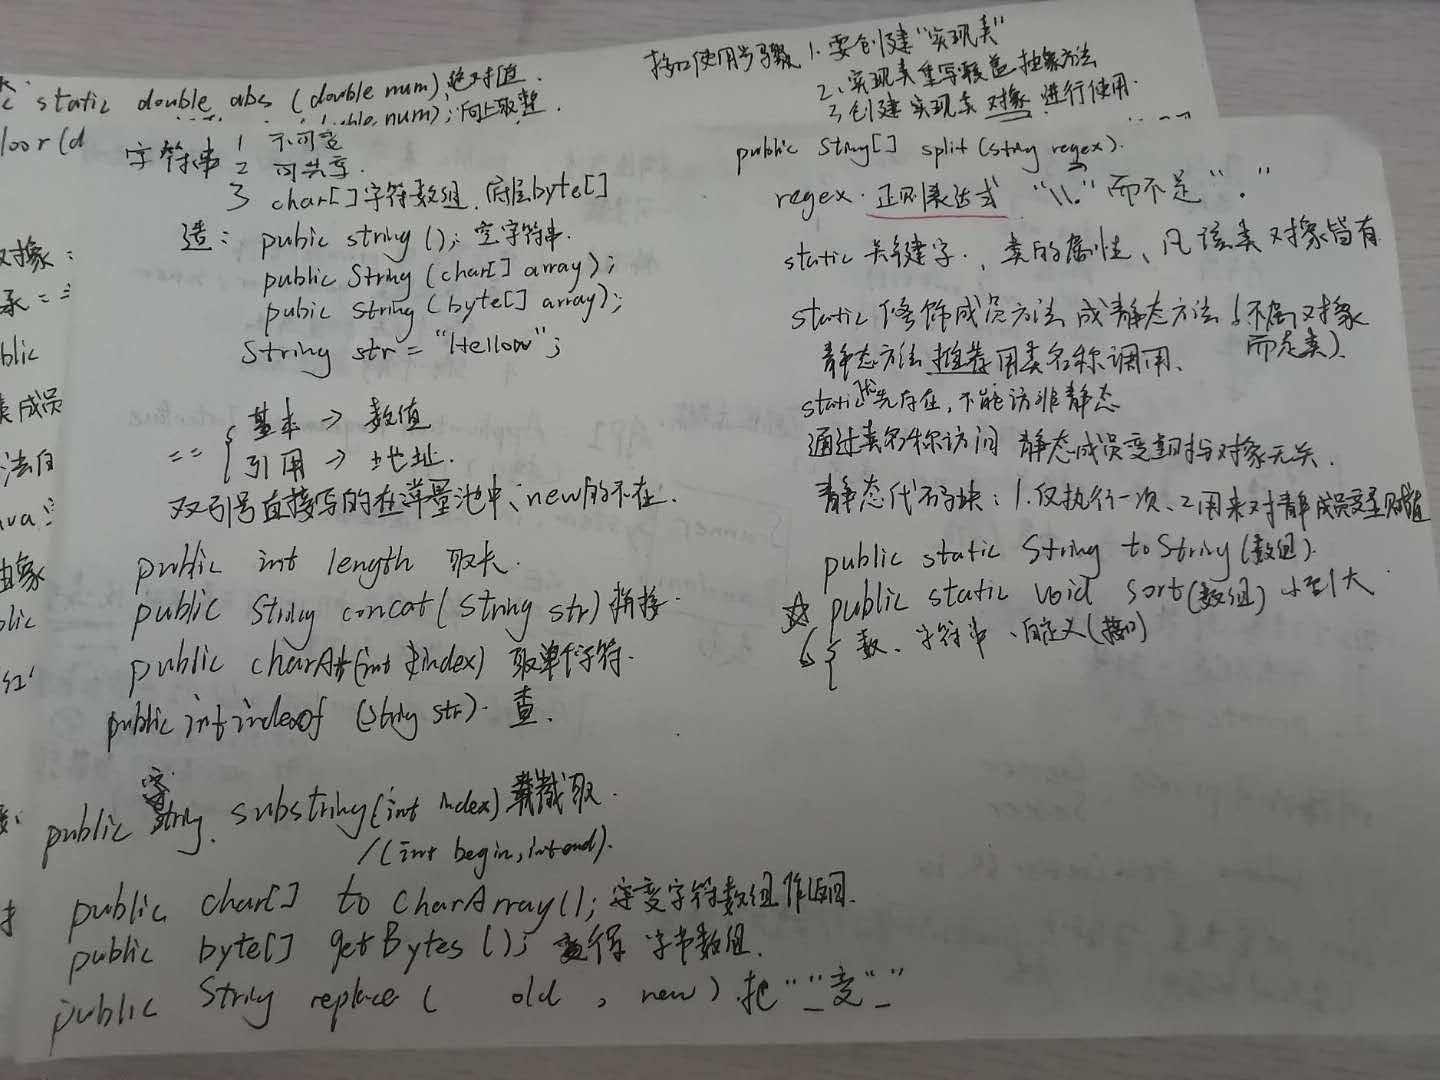 接口使用步骤 1. 要创建"实现类"
2、实现类重写覆盖抽象方法
3 创建实现类对象 进行使用.
static double abs (double num) 绝对值.
double num); 向上取整.
loor (d
字符串 1 不可变
2 可共享.
3 char[] 字符数组. 底层byte[]
造: pubic string (); 空字符串.
public String (char[] array);
pubic string (byte[] array);
String str = "Hellow";
== { 基本 → 数值
引用 → 地址.
双引号直接写的在常量池中、new的不在.
public int length 取长.
public String concat (String str) 拼接.
public charAt (int index) 取单个字符.
public int indexof (String str). 查.
public String. substring (int index) 截取.
/ (int begin, int end).
public char[] to CharArray (); 字变字符数组作返回.
public byte[] getBytes (); 获得 字节数组.
public String replace ( old , new ) .把"_"变"_"
public String[] split (string regex).
regex. 正则表达式 "\\." 而不是 "."
static 关键字., 类的属性、凡该类对象皆有
static 修饰成员方法 成静态方法 (不属对象
而是类).
静态方法 推荐用类名称调用、
static优先存在, 不能访非静态
通过类名称访问 静态成员变量时与对象无关.
静态代码块: 1. 仅执行一次、2 用来对静成员变量赋值
public static String toString (数组).
☆ public static void sort (数组) 小到大.
{ 数、字符串、自定义 (接口)
对象:
blic
成员
ava
抽象
blic